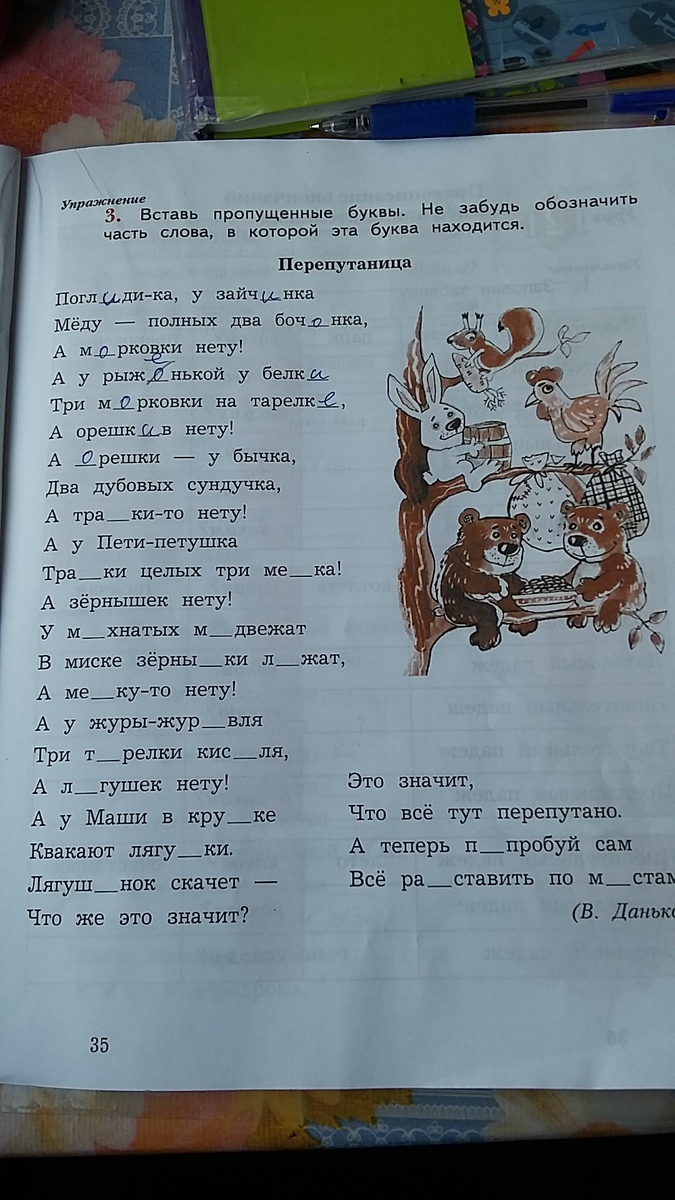 Упражнение
3. Вставь пропущенные буквы. Не забудь обозначить
часть слова, в которой эта буква находится.
Перепутаница
Поглиди-ка, у зайчинка
Мёду — полных два бочонка,
А морковки нету!
А у рыженькой у белки
Три морковки на тарелке,
А орешкив нету!
А орешки — у бычка,
Два дубовых сундучка,
А тра_ки-то нету!
А у Пети-петушка
Тра_ки целых три ме_ка!
А зёрнышек нету!
У м_хнатых м_двежат
В миске зёрны_ки л_жат,
А ме_ку-то нету!
А у журы-жур_вля
Три т_релки кис_ля,
А л_гушек нету!
А у Маши в кру_ке
Квакают лягу_ки.
Лягуш_нок скачет —
Что же это значит?
Это значит,
Что всё тут перепутано.
А теперь п_пробуй сам
Всё ра_ставить по м_стам
(В. Данько
35